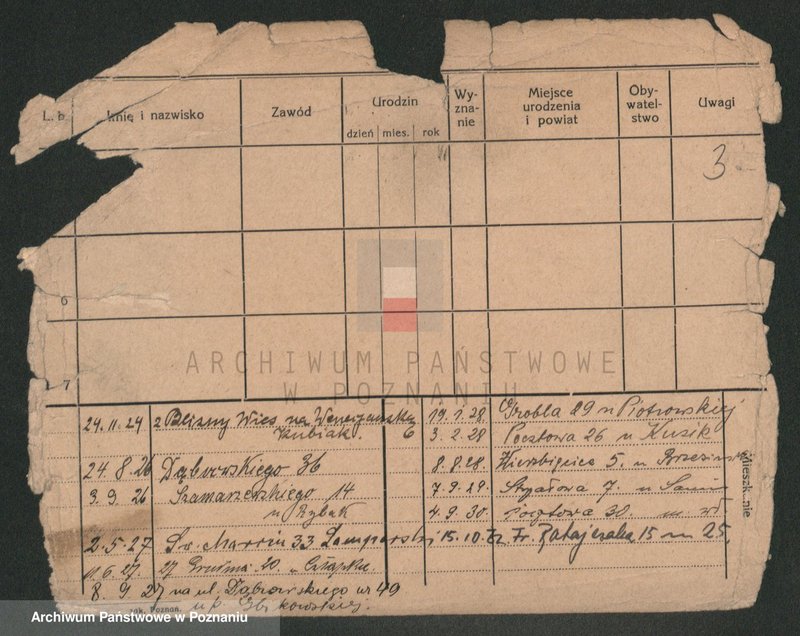 L. b. Imię i nazwisko Zawód Urodzin Wy-zna-nie Miejsce urodzenia i powiat Oby-watel-stwo Uwagi
dzień mies. rok
3
6
7
ARCHIWUM PAŃSTWOWE
W POZNANIU
24.11.24 z Blizny Wies na Wenecjanską 6
Kubiak.
24.8.26 Dąbrowskiego 36
3.9.26 Szamarzewskiego 14
u Rybak
2.5.27 Św. Marcin 33
11.6.27. 27 Grudnia 20.
8.9.27 na ul. Dąbrowskiego nr 49
u p.
19.1.28. Grobla 29 u Piotrowskiej
3.2.28 Pocztowa 26 u Kusik
8.8.28. Wierzbięcice 5. u
7.9.29. 7. u
4.9.30. Pocztowa 30. m.
15.10. Fr. Ratajczaka 15 m 25.
mieszk. nie
Poznań.
Archiwum Państwowe w Poznaniu